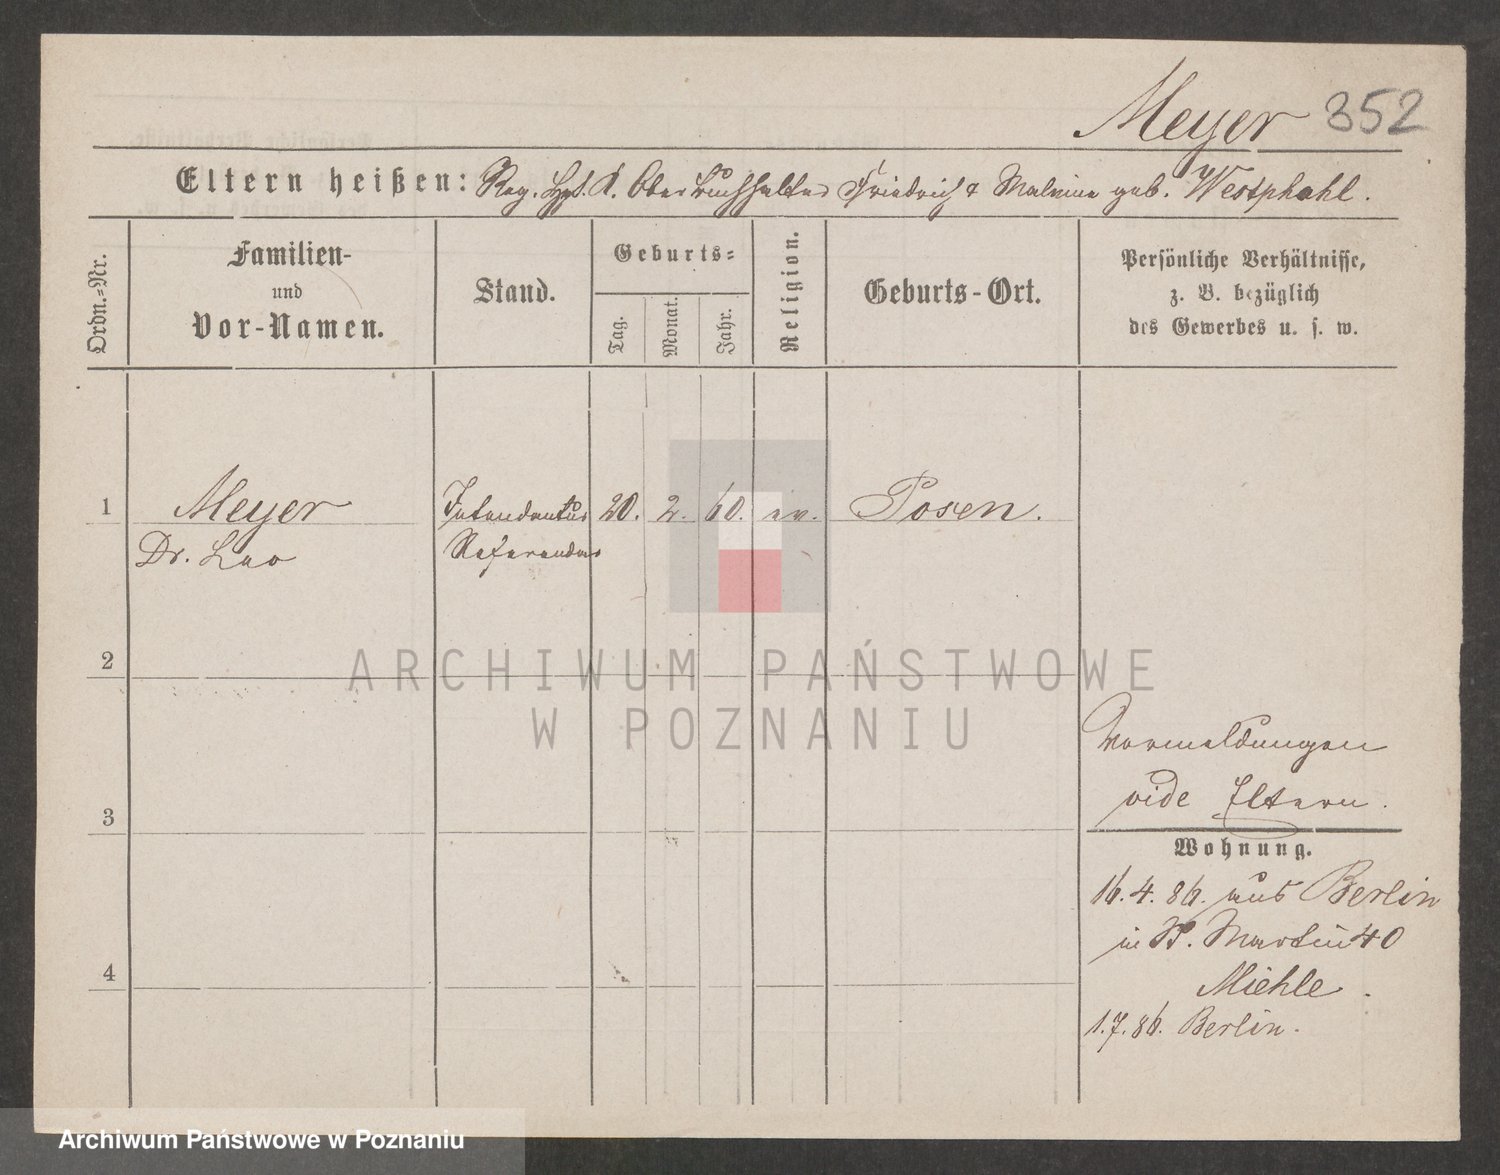 Meyer 352
Eltern heißen: Reg. Hpt. K. Ober Buchhalter Friedrich & Malvine geb. Westphahl.
Ordn.-Nr.
Familien-
und
Vor-Namen.
Stand.
Geburts-
Tag.
Monat.
Jahr.
Religion.
Geburts-Ort.
Persönliche Verhältnisse,
z. B. bezüglich
des Gewerbes u. s. w.
1 Meyer Intendantur 20. 2. 60. ev. Posen.
Dr. Leo Referendar
2
ARCHIWUM PAŃSTWOWE
W POZNANIU
Vormeldungen
vide Eltern.
3
Wohnung.
16.4.86. aus Berlin
in St. Martin 40
4
Miehle.
1.7.86. Berlin.
Archiwum Państwowe w Poznaniu